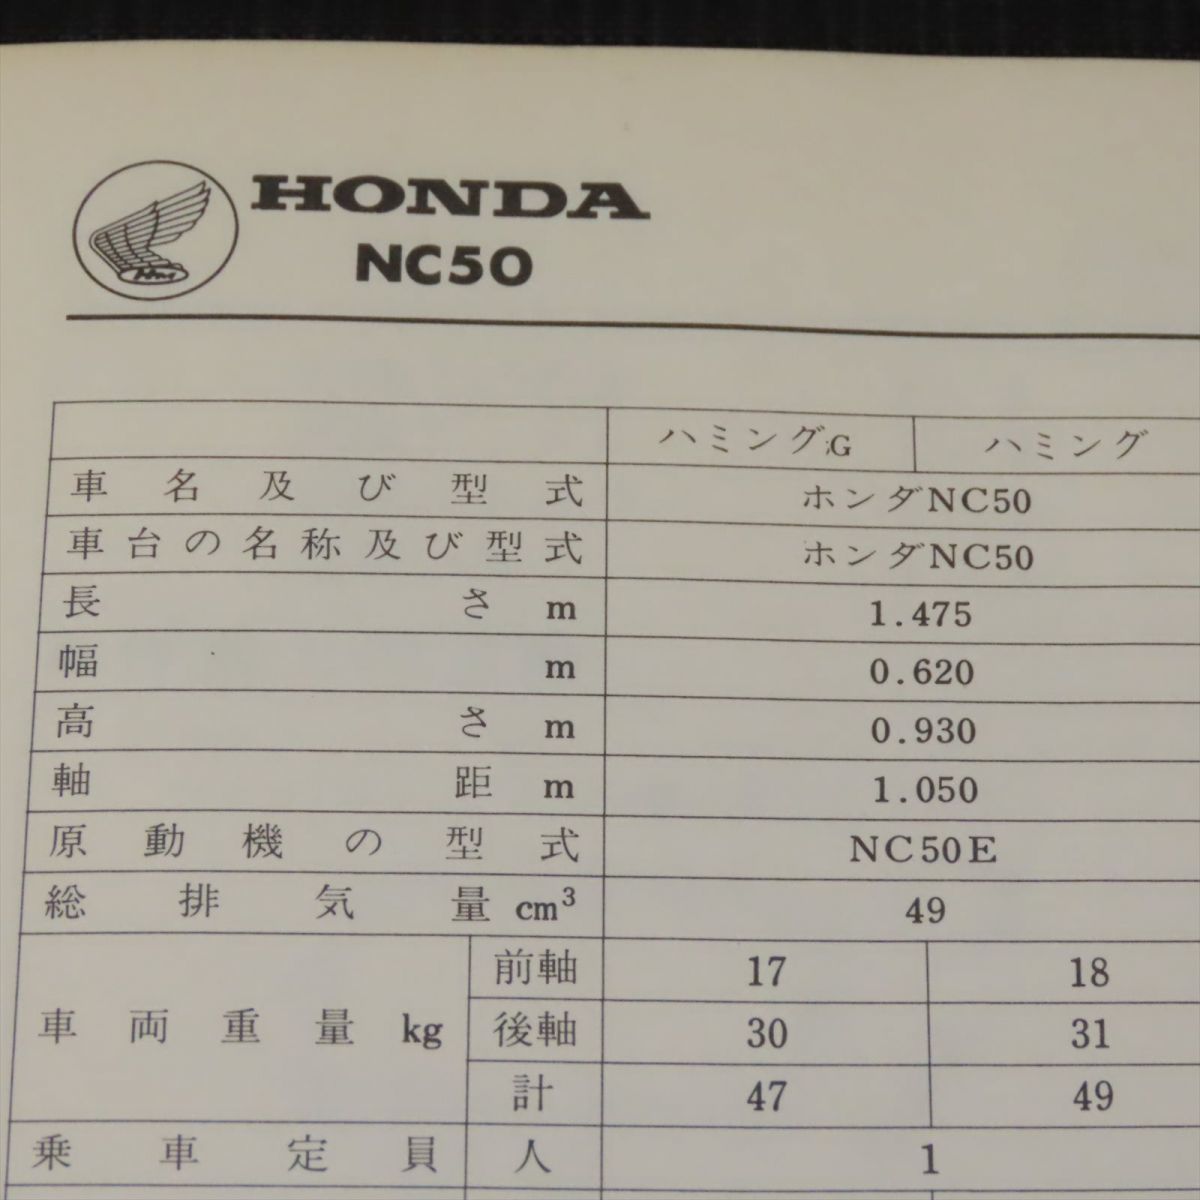 HONDA
NC50
ハミングG ハミング
車名及び型式 ホンダNC50
車台の名称及び型式 ホンダNC50
長さ m 1.475
幅 m 0.620
高さ m 0.930
軸距 m 1.050
原動機の型式 NC50E
総排気量 cm³ 49
車両重量 kg 前軸 17 18
後軸 30 31
計 47 49
乗車定員 人 1